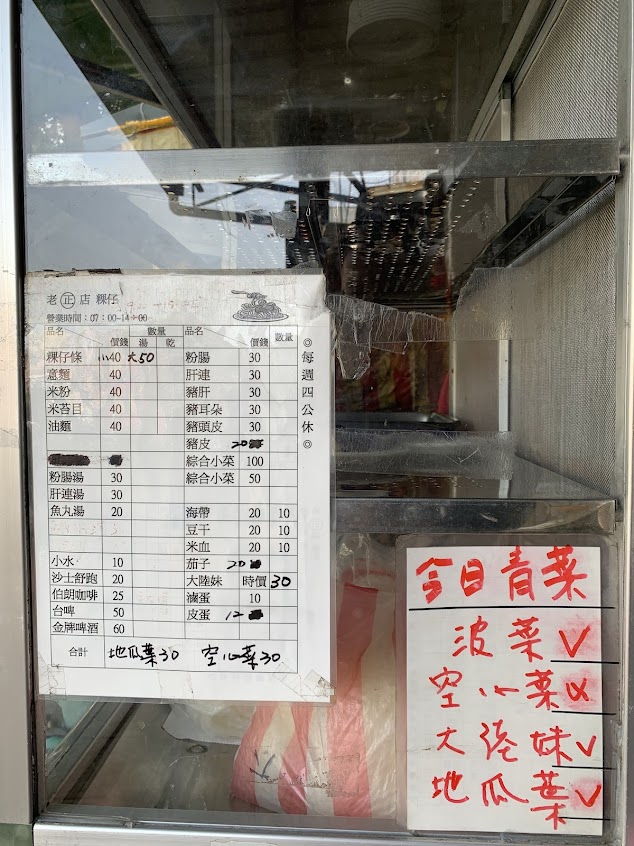 老正店 粿仔
營業時間：07：00-14：00
品名 價錢 數量 湯 乾 品名 價錢 數量
粿仔條 小40 大50 粉腸 30
意麵 40 肝連 30
米粉 40 豬肝 30
米苔目 40 豬耳朵 30
油麵 40 豬頭皮 30
豬皮 20
綜合小菜 100
粉腸湯 30 綜合小菜 50
肝連湯 30
魚丸湯 20 海帶 20 10
豆干 20 10
米血 20 10
小水 10 茄子 20
沙士舒跑 20 大陸妹 時價 30
伯朗咖啡 25 滷蛋 10
台啤 50 皮蛋 12
金牌啤酒 60
合計 地瓜葉30 空心菜30
◎每週四公休◎
今日青菜
波菜 V
空心菜
大陸妹 V
地瓜葉 V